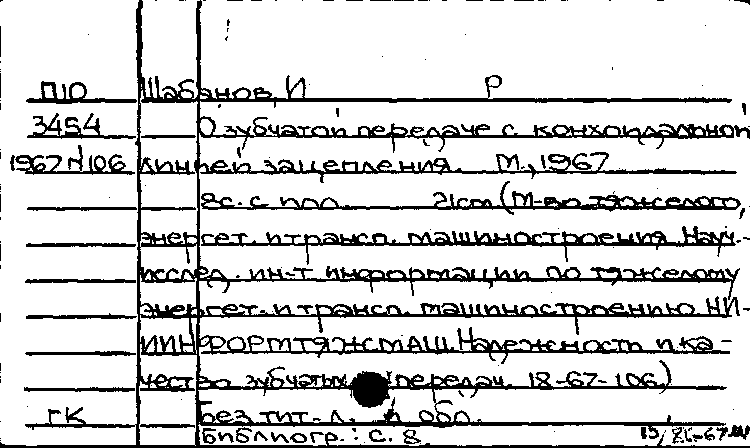 П10 Шабанов, И Р
3454 О зубчатой передаче с конхоидальной
1967 №106 линией зацепления. М., 1967
8с. с илл. 21см (М-во тяжелого,
энергет. и трансп. машиностроения. Науч.-
исслед. ин-т информации по тяжелому
энергет. и трансп. машиностроению НИ-
ИИНФОРМТЯЖМАШ. Надежность и ка-
чество зубчатых передач. 18-67-106)
гк Без тит. л. и обл.
Библиогр.: с. 8.